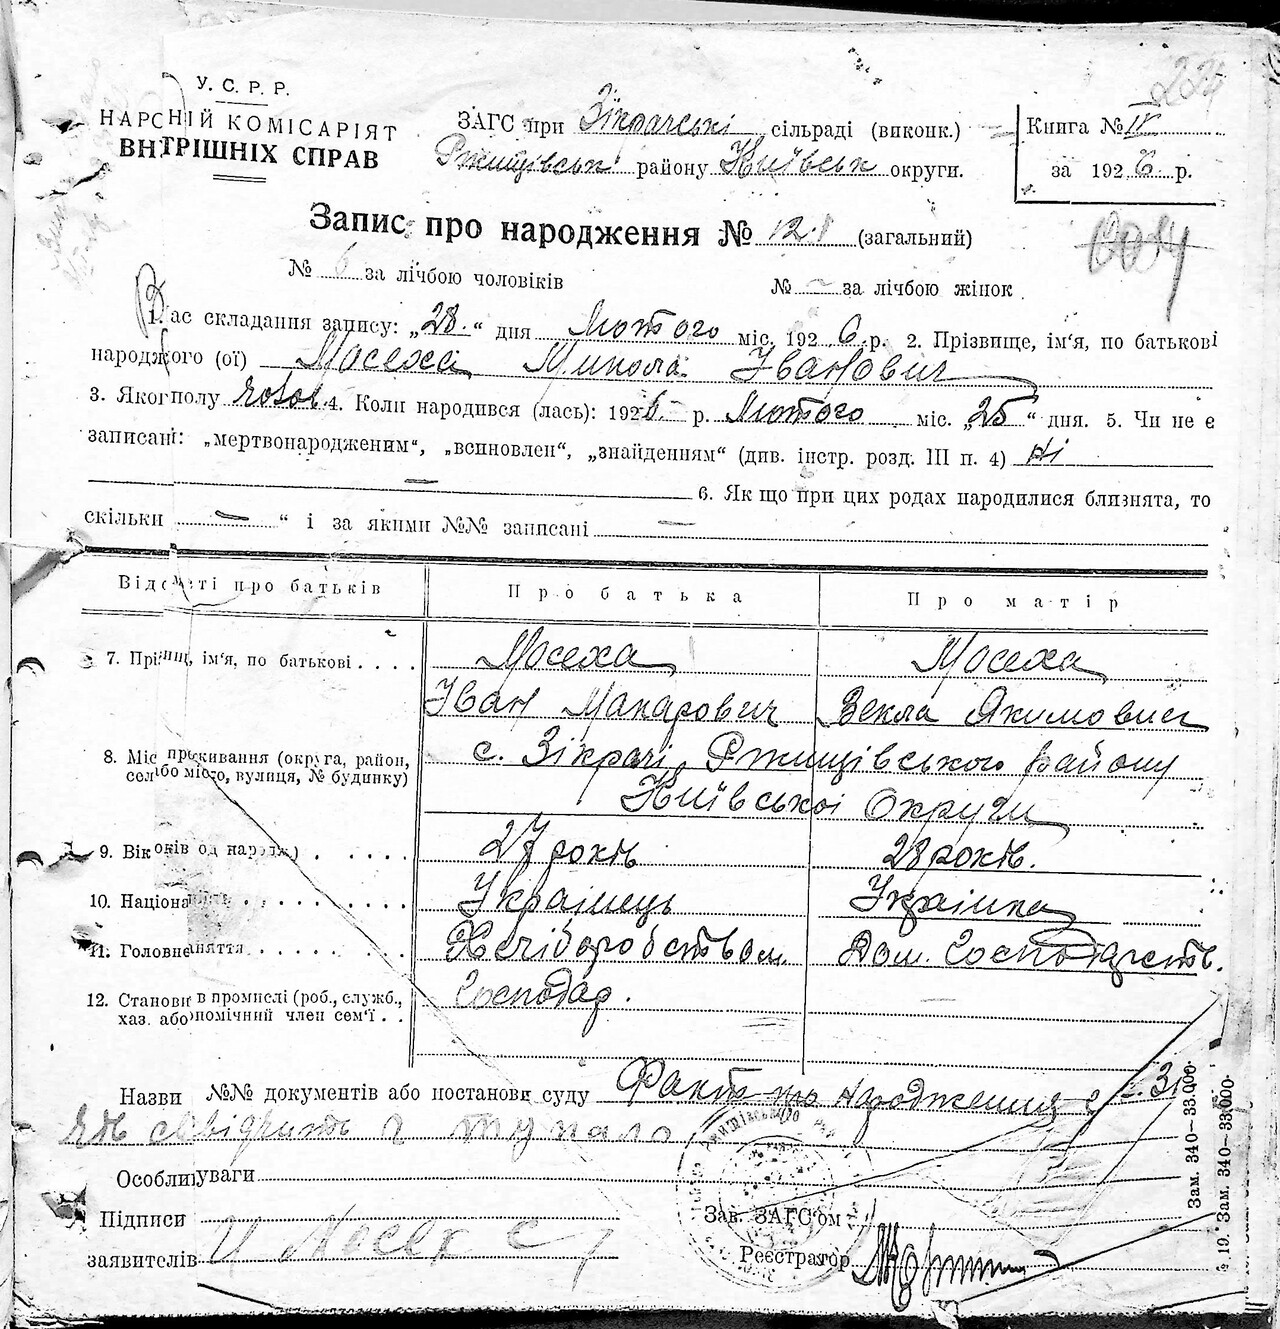 У. С. Р. Р.
НАРС НІЙ КОМІСАРІЯТ
ВНТРІШНІХ СПРАВ
ЗАГС при Зікрачські сільраді (виконк.)
Ржищівськ району Київськ округи.
Книга № IV
за 1926 р.
Запис про народження № 12 (загальний)
№ 6 за лічбою чоловіків
№ — за лічбою жінок
1. ас складання запису: „28.“ дня Лютого міс. 1926 р. 2. Прізвище, ім'я, по батькові
народжого (ої) Мосеха Микола Іванович
3. Якої полу чолов. 4. Коли народився (лась): 1926 р. Лютого міс. „25“ дня. 5. Чи не є
записані: „мертвонародженим“, „всиновлен“, „знайденням“ (див. інстр. розд. III п. 4) Ні
— 6. Як що при цих родах народилися близнята, то
скільки — “ і за якими №№ записані —
Відс ті про батьків
Про батька
Про матір
7. Прі нщ, ім'я, по батькові . . . .
Мосеха
Мосеха
Іван Макарович
Векла Якимовна
8. Міс проживання (округа, район,
с. Зікрачі Ржищівського Району
сел або місто, вулиця, № будинку)
Київської Округи
9. Вік (років од народж.) . . . . . .
27 років
28 років.
10. Націона
Українець
Українка
11. Головне няття
Хліборобством
Дом. Господарств.
12. Станови в промислі (роб., служб.,
Господар.
—
хаз. або помічний член сем'ї . .
Назви №№ документів або постанови суду Факт про народження
свідчить
Особли уваги
Підписи
Зав. ЗАГС'ом
заявителів И Мосеха
Реєстратор
Зам. 340—33.000.
19. Зам. 340—33.000.